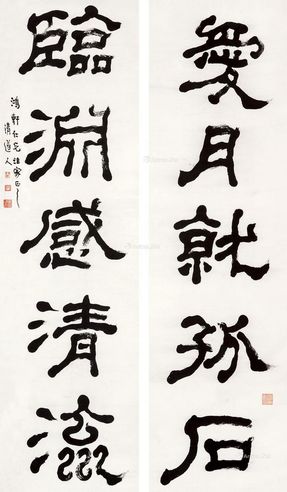 愛月就孤石
臨淵感清流
鴻軒仁兄法家正之
清道人